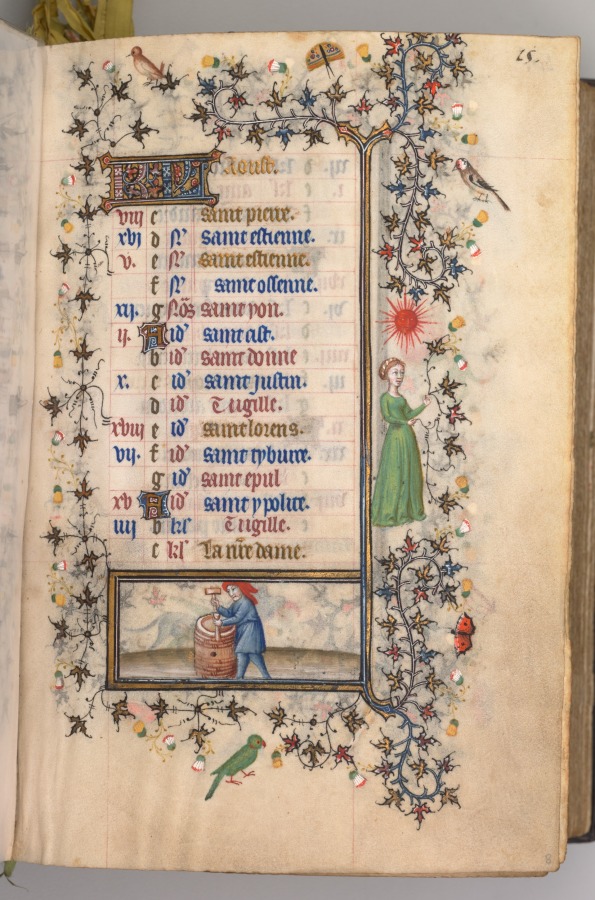 15.
KL Aoust.
viii c saint pierre.
xvj d N̄ saint estienne.
v. e N̄ saint estienne.
f N̄ saint ossenne.
xij. g Noͣs saint yon.
ij. A id' saint ast.
b id' saint donne
x. c id' saint justin.
d id' Uigille.
xviij e id' saint lorens.
vij. f id' saint tyburce.
g id' saint epul
xv A id' saint ypolite.
iiij b kl' Uigille.
c kl' La n̄re dame.
8